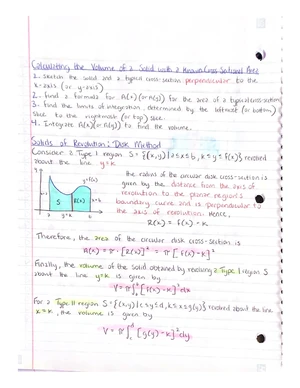 Calculating the Volume of a Solid with a Known Cross-Sectional Area
1. Sketch the solid and a typical cross-section perpendicular to the
x-axis (or y-axis)
2. Find a formula for A(x) (or A(y)) for the area of a typical cross-section
3. Find the limits of integration, determined by the leftmost (or bottom)
slice to the rightmost (or top) slice.
4. Integrate A(x) (or A(y)) to find the volume.
Solids of Revolution: Disk Method
Consider a Type I region S = {(x,y) | a ≤ x ≤ b, k ≤ y ≤ f(x)} revolved
about the line y=k
y=f(x)
S
R(x)
x=b
a
y=k
b
the radius of the circular disk cross-section is
given by the distance from the axis of
revolution to the planar region's
boundary curve and is perpendicular to
the axis of revolution. Hence,
R(x) = f(x) - k
Therefore, the area of the circular disk cross-section is
A(x) = π · [R(x)]² = π[f(x) - k]²
Finally, the volume of the solid obtained by revolving a Type I region S
about the line y=k is given by
V = π∫ₐᵇ [f(x) - k]² dx
For a Type II region S = {(x,y) | c ≤ y ≤ d, k ≤ x ≤ g(y)} revolved about the line
x = k, the volume is given by
V = π∫ [g(y) - k]² dy